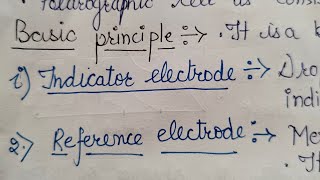 Polarographic cell is cons
Basic principle :→ . It is a b
i) Indicator electrode :→ Dro
indi
2.) Reference electrode :→ Me
. It